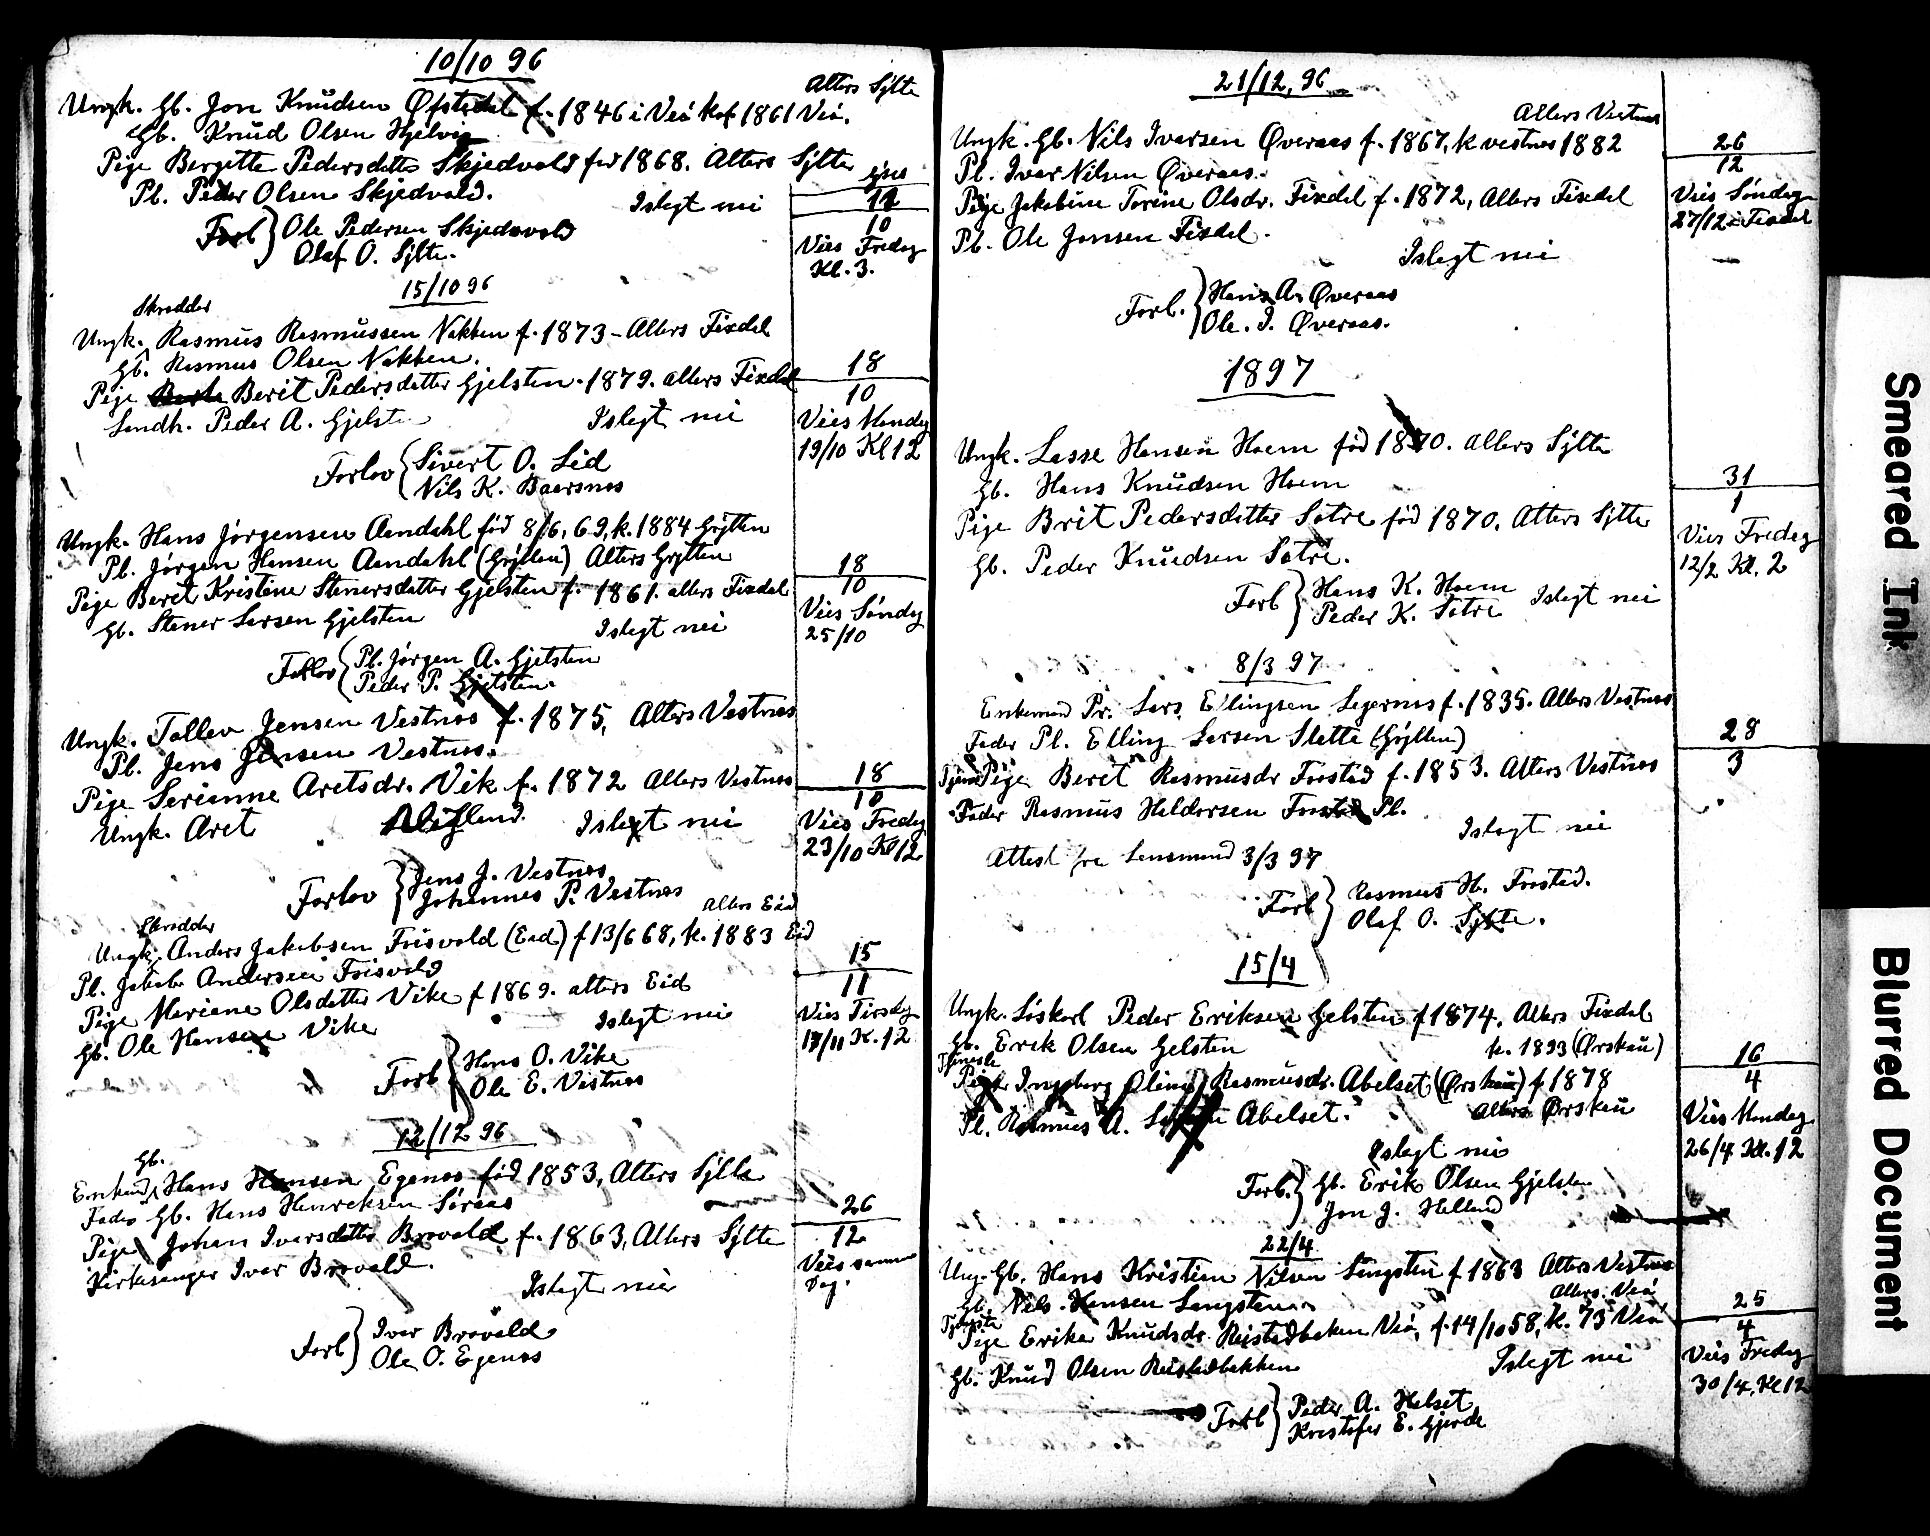 10/10 96
Alters Sylte
Ungk. Gb. Jon Knudsen Øfstedal f. 1846 i Veø kof 1861 Veø.
Gb. Knud Olsen Hjelvig
Pige Bergette Pedersdatter Skjedvold fød 1868. Alters Sylte
Pl. Peder Olsen Skjedvold.
Islegt nei
10
Forl } Ole Pedersen Skjedsvold
Olaf O. Sylte.
Vies Fredag
Kl. 3.
15/10 96
Skrædder
Ungk. Rasmus Rasmussen Nakken f. 1873 - Alters Fixdal
Gb. Rasmus Olsen Nakken.
18
10
Pige Berit Pedersdatter Gjelsten. 1879. alters Fixdal
Landh. Peder A. Gjelsten
Islegt nei
Vies Mandag
19/10 Kl 12
Forlov { Sivert O. Lid
Nils K. Baarsnes
Ungk. Hans Jørgensen Aandahl fød 8/6, 69, k. 1884 Grytten
Pl. Jørgen Hansen Aandahl (Grytten) Alters Grytten
18
10
Pige Beret Kristine Stenersdatter Gjelsten f. 1861. alters Fixdal
Gb. Stener Larsen Gjelsten
Islegt nei
Vies Søndag
25/10
Forlov { Pl. Jørgen A. Gjelsten
Peder P. Gjelsten.
Ungk. Tollev Jensen Vestnes f. 1875, Alters Vestnes
Pl. Jens Jensen Vestnes.
18
10
Pige Serianne Aretsdr. Vik f. 1872 Alters Vestnes
Ungk. Aret
Islegt nei
Vies Fredag
23/10 Kl 12
Forlov } Jens J. Vestnes
Johannes P. Vestnes
alters Eid
Skrædder
Ungk. Anders Jakobsen Frisvold (Eid) f 13/6 68, k. 1883 Eid
Pl. Jakob Andersen Frisvold
15
11
Pige Mariane Olsdatter Vike f 1869. alters Eid
Gb. Ole Hansen Vike
Islegt nei
Vies Tirsdag
17/11 K. 12
Forl { Hans O. Vike
Ole E. Vestnes
12/12 96
Gb.
Enkemd. Hans Hansen Egenes fød 1853, Alters Sylte
Fader Gb. Hans Henreksen Søraas
26
12
Pige Johan Ivarsdatter Brovold f. 1863, Alters Sylte
Kirkesanger Ivar Brovold.
Islegt nei
Vies samme
Dag.
Forl } Iver Brovold
Ole O. Egenes
21/12, 96
Alters Vestnes
Ungk. Gb. Nils Iversen Øveraas f. 1867, k vestnes 1882
Pl. Ivar Nilsen Øveraas.
26
12
Pige Jakobine Torine Olsdr. Fixdal f. 1872, Alters Fixdal
Pl. Ole Jonsen Fixdal.
Islegt nei
Vies Søndag
27/12 Fixdal
Forl. } Hans A. Øveraas
Ole. I. Øveraas.
1897
Ungk. Lasse Hansen Hoem fød 1870. alters Sylte
Gb. Hans Knudsen Hoem
31
1
Pige Brit Pedersdatter Sætre fød 1870. Alters Sylte
Gb. Peder Knudsen Sætre.
Vies Fredag
12/2 Kl. 2
Forl } Hans K. Hoem
Peder K. Sætre
Islegt nei
8/3 97
Enkemand Pr. Lars Ellingsen Legernes f. 1835. Alters Vestnes
Fader Pl. Elling Larsen Slette (Grytten)
28
3
Pige Beret Rasmusdr Frostad f. 1853. Alters Vestnes
Fader Rasmus Heldorsen Frostad Pl.
Islegt nei
Attest fra Lensmand 3/3 97
Forl } Rasmus H. Frostad.
Olaf O. Sylte.
15/4
Ungk. Løskarl Peder Eriksen Gelsten f 1874. Alters Fixdal
Gb. Erik Olsen Gelsten
k. 1893 (Ørskau)
16
4
Tjeneste
Pige Ingeborg Oline Rasmusdr. Abelset (Ørskau) f 1878
Pl. Rasmus A. Abelset.
Alters Ørskau
Islegt nei
Vies Mandag
26/4 Kl. 12
Forl. } Gb. Erik Olsen Gjelsten
Jon J. Helland
22/4
Ung. Gb. Hans Kristian Nilsen Langsten f 1863 Alters Vestnes
Gb. Nils Hansen Langsten
Alters. Veø
25
4
Tjeneste
Pige Erika Knudsdr. Reistadbakken Veø, f. 14/10 58, k. 73 Veø
Gb. Knud Olsen Reistadbakken
Islegt nei
Vies Fredag
30/4. Kl 12
Forl } Peder A. Helset
Kristofer E. Gjerde
Smeared Ink
Blurred Document